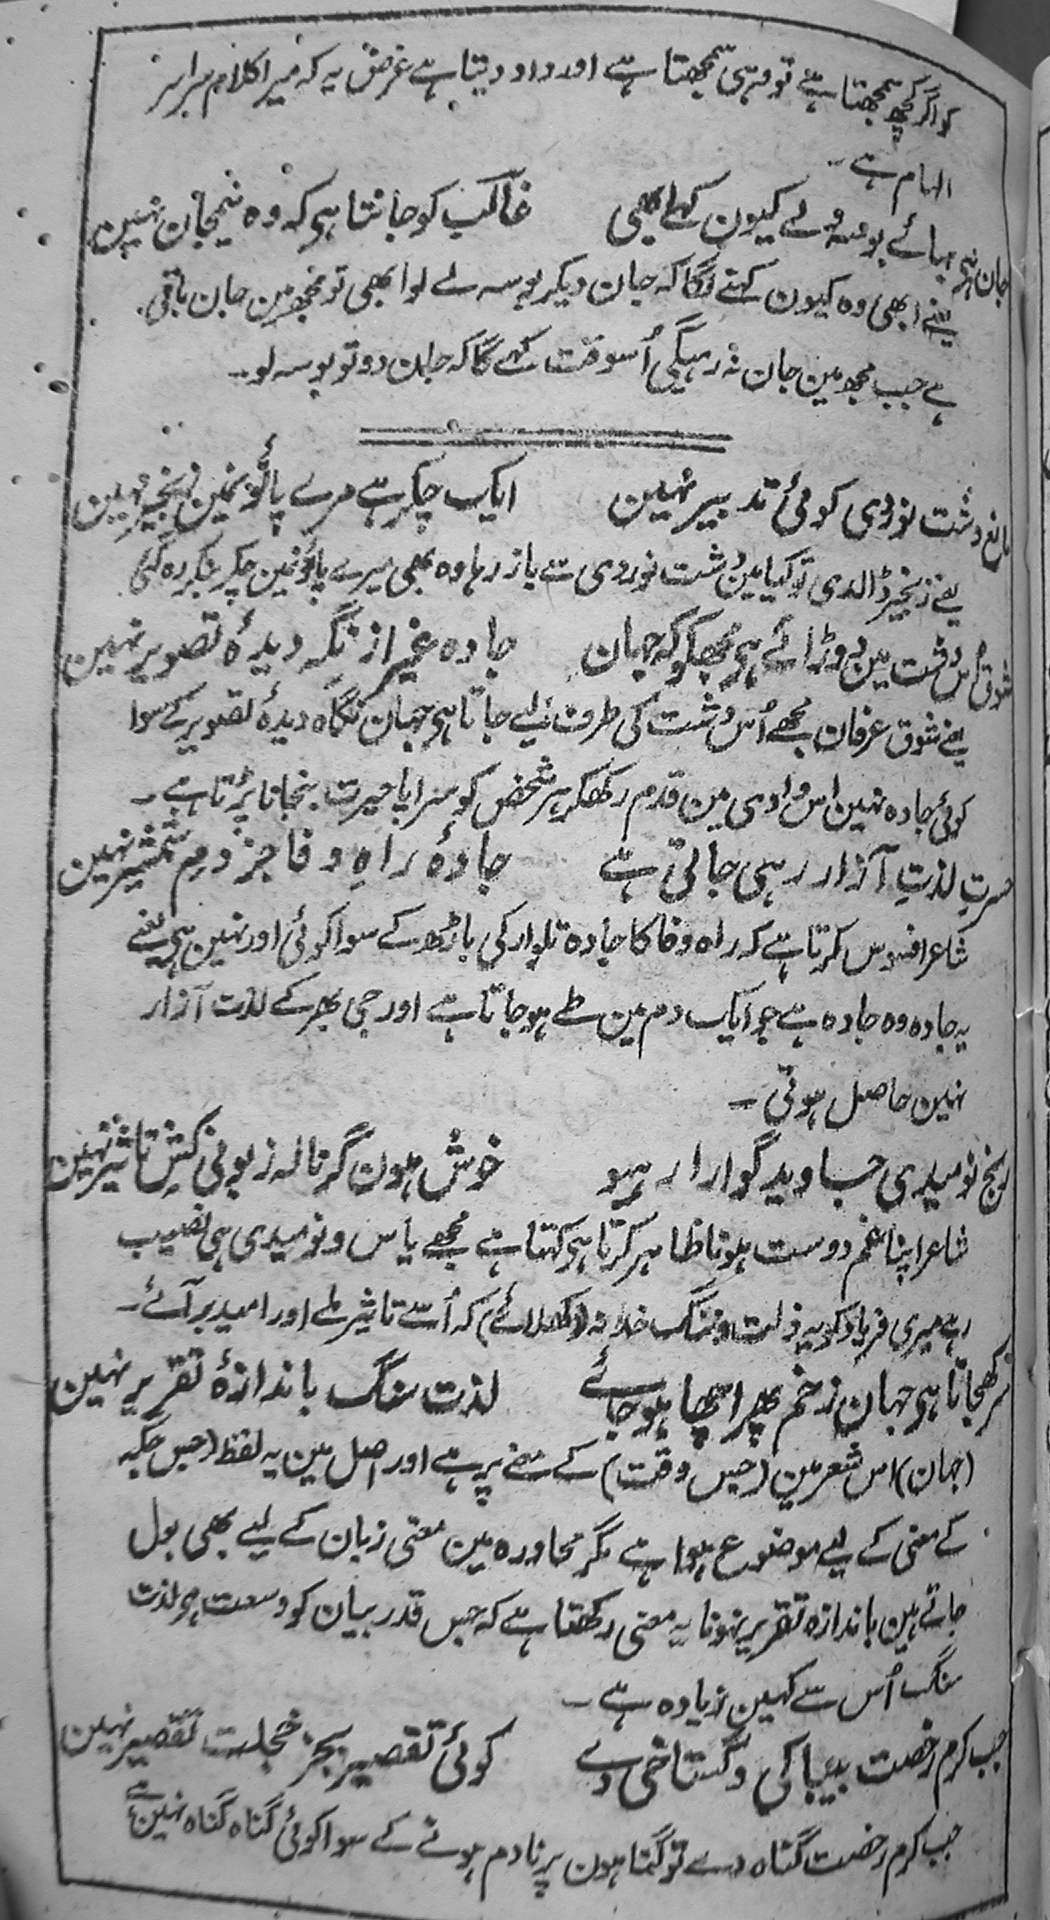 کو اگر کچھ سمجھتا ہے تو وہی سمجھتا ہے اور داد دیتا ہے غرض یہ کہ میرا کلام سراسر
الہام ہے۔
جان ہی بہائے بوسہ ولے کیون کہے ابھی غالب کو جانتا ہی کہ وہ نیمجان نہین
یعنے ابھی وہ کیون کہنے لگا کہ جان دیکر بوسہ لے لو ابھی تو مجھ مین جان باقی
ہے جب مجھ مین جان نہ رہیگی اُسوقت کہے گا کہ جان دو تو بوسہ لو۔
مانع دشت نوردی کوئی تدبیر نہین ایک چکر ہے مرے پائونمین زنجیر نہین
یعنے زنجیر ڈالدی تو کیا مین دشت نوردی سے باز رہا وہ بھی میرے پائونمین چکر بنکر رہ گئی
شوق اُس دشت مین دوڑائے ہی مجھکو کہ جہان جادہ غیر از نگہِ دیدۂ تصویر نہین
یعنے شوق عرفان مجھے اُس دشت کی طرف لیے جاتا ہی جہان نگاہ دیدۂ تصویر کے سوا
کوئی جادہ نہین اس وادی مین قدم رکھکر ہر شخص کو سراپا حیرت بنجانا پڑتا ہے۔
حسرتِ لذتِ آزار رہی جاتی ہے جادۂ راہِ وفا جز دمِ شمشیر نہین
شاعر افسوس کرتا ہے کہ راہ وفا کا جادہ تلوار کی باڑھ کے سوا کوئی اور نہین ہی یعنے
یہ جادہ وہ جادہ ہے جو ایک دم مین طے ہو جاتا ہے اور جی بھر کے لذت آزار
نہین حاصل ہوتی۔
رنج نومیدی جاوید گوارا رہیو خوش ہون گر نالہ زبونی کشِ تاثیر نہین
شاعر اپنا غم دوست ہونا ظاہر کرتا ہی کہتا ہے مجھے یاس و نومیدی ہی نصیب
رہے میری فریاد کو یہ ذلت و ننگ خدا نہ (دکھلائے) کہ اُسے تاثیر ملے اور امید بر آئے۔
سر کھجاتا ہی جہان زخم پھر اچھا ہو جائے لذت سنگ باندازۂ تقریر نہین
(جہان) اس شعر مین (جس وقت) کے معنے پر ہے اور اصل مین یہ لفظ (جس جگہ
کے معنی کے لیے موضوع ہوا ہے مگر محاورہ مین معنی زبان کے لیے بھی بول
جاتے ہین باندازہ تقریر نہونا یہ معنی رکھتا ہے کہ جس قدر بیان کو وسعت ہی لذت
سنگ اُس سے کہین زیادہ ہے۔
جب کرم رخصت بیباکی و گستاخی دے کوئی تقصیر بجز خجلت تقصیر نہین
جب کرم رخصت گناہ دے تو گناہون پر نادم ہونے کے سوا کوئی گناہ گناہ نہین ہے